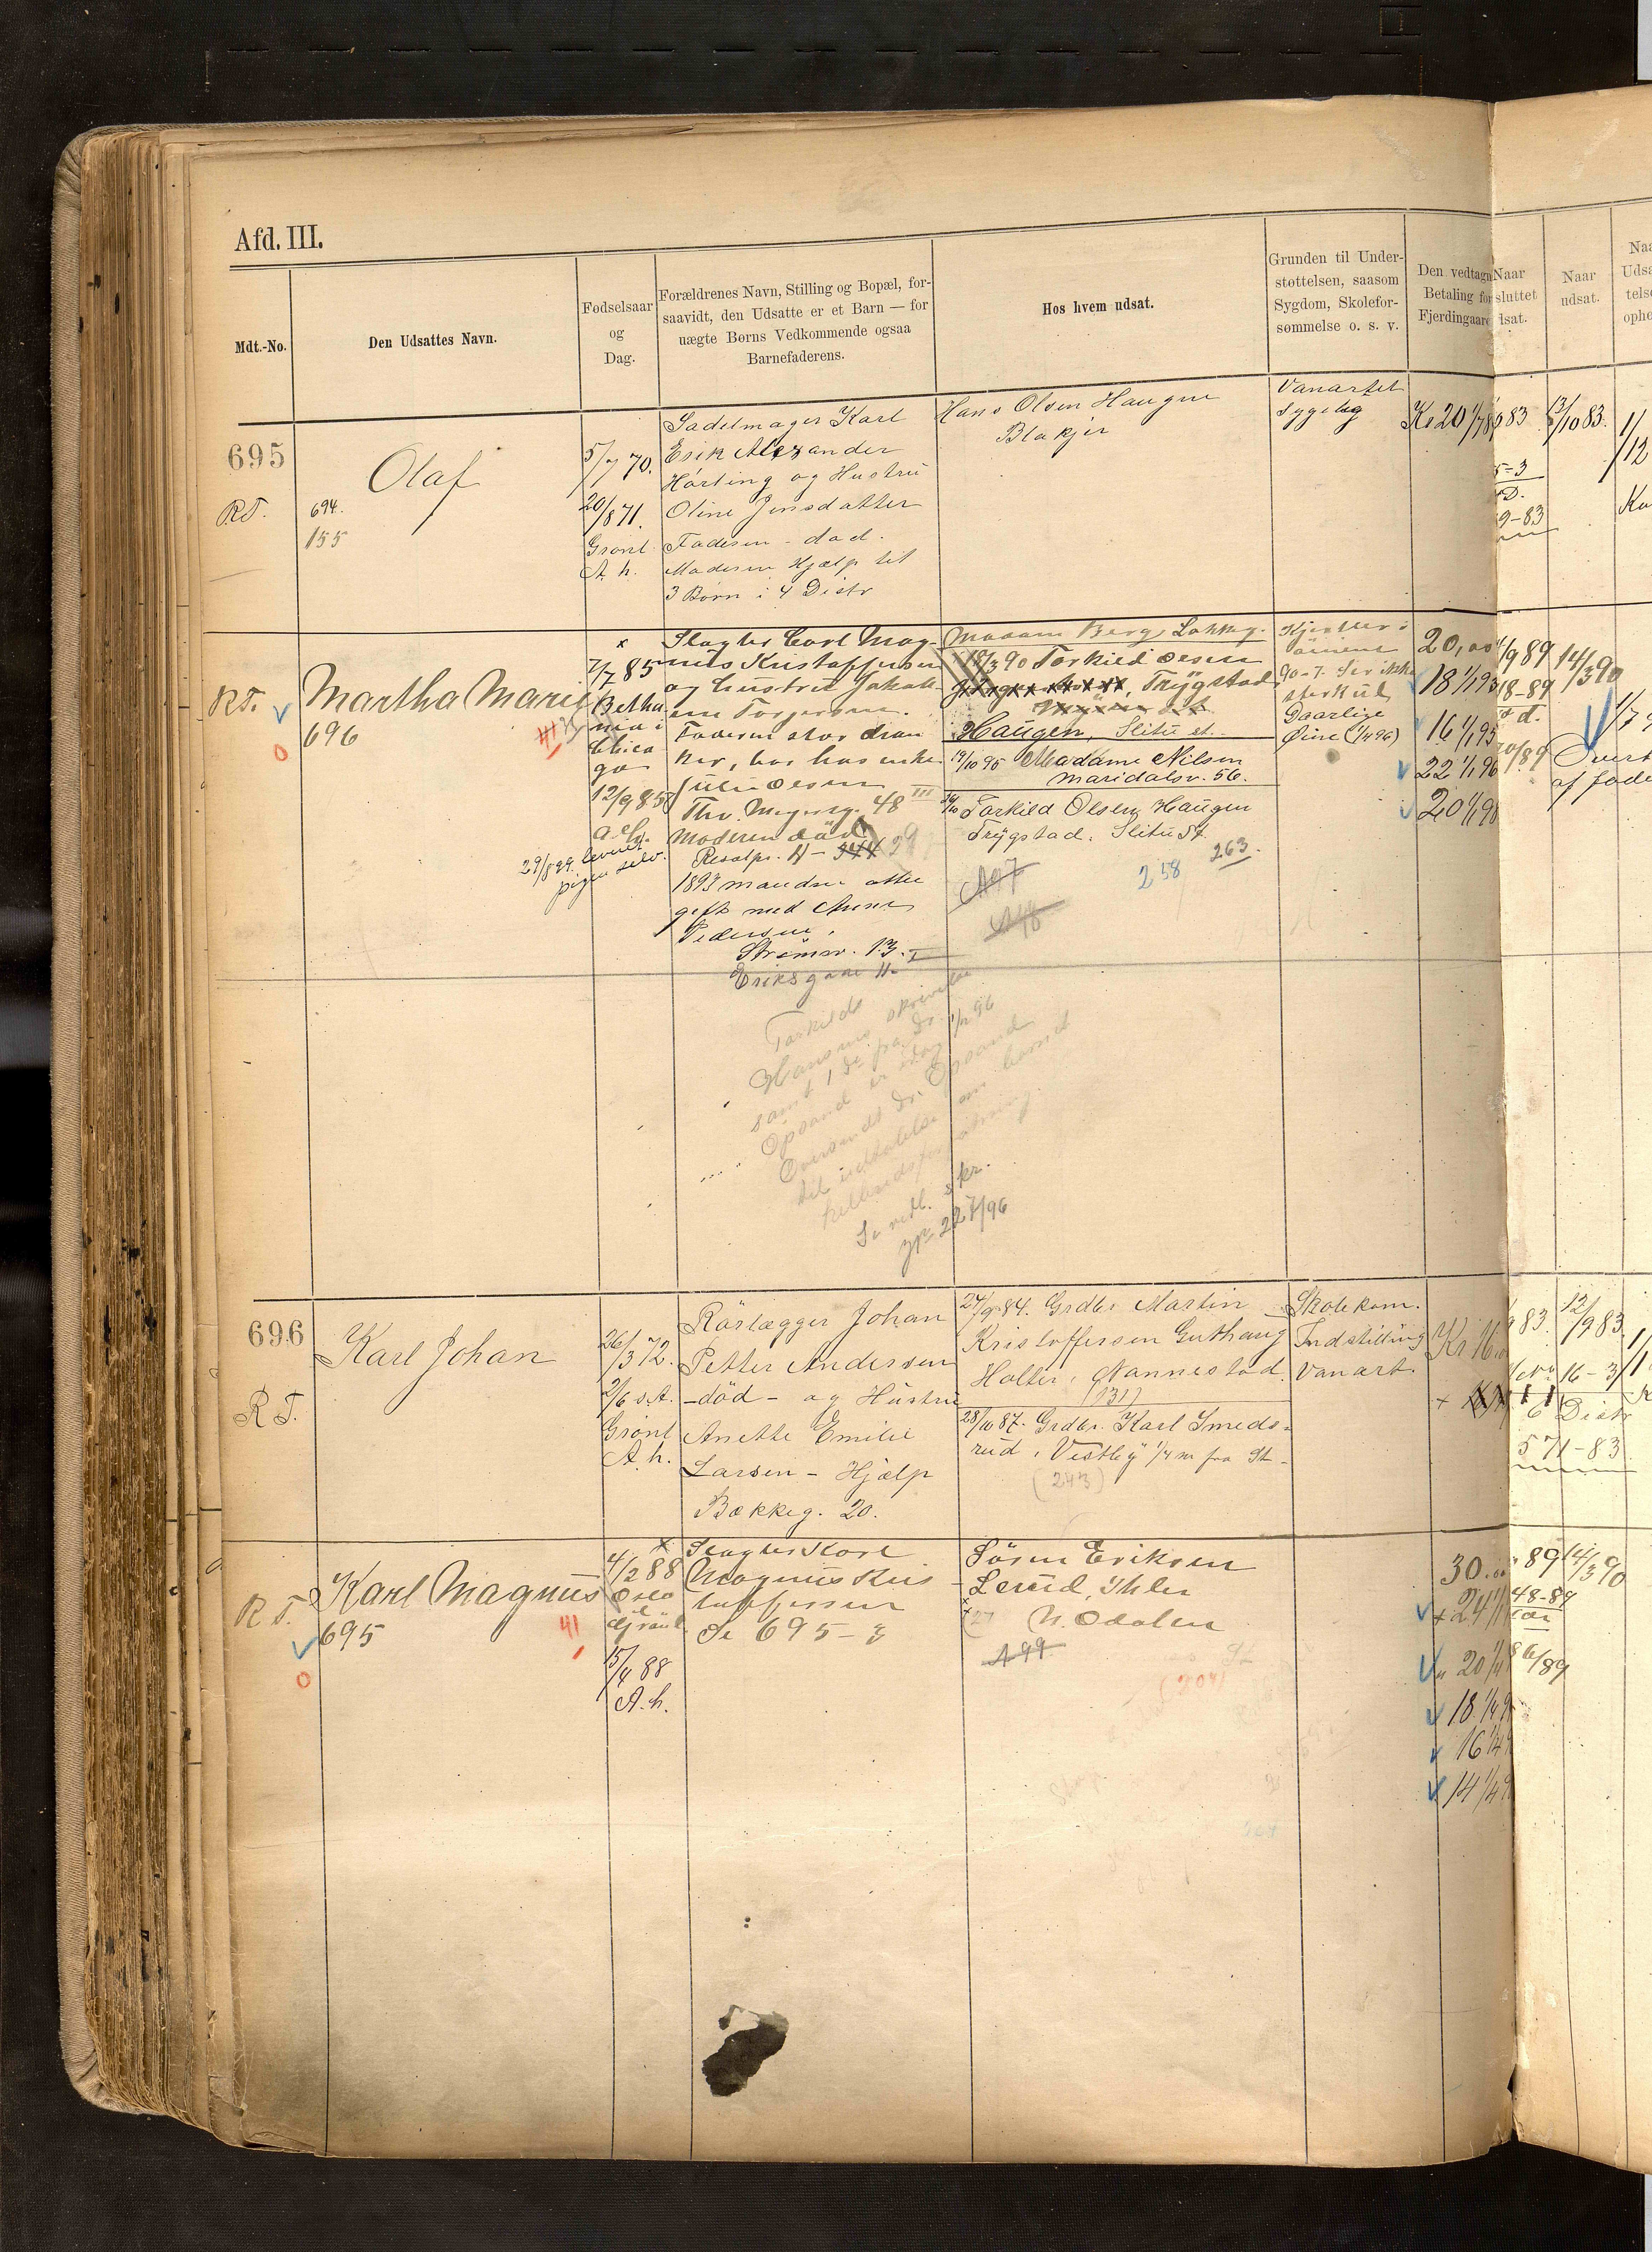 Afd. III.
Mdt.-No.
Den Udsattes Navn.
Fødselsaar
og
Dag.
Forældrenes Navn, Stilling og Bopæl, for-
saavidt, den Udsatte er et Barn — for
uægte Børns Vedkommende ogsaa
Barnefaderens.
Hos hvem udsat.
Grunden til Under-
støttelsen, saasom
Sygdom, Skolefor-
sømmelse o. s. v.
Den vedtagn
Betaling for
Fjerdingaare
Naar
sluttet
dsat.
Naar
udsat.
Naa
Udsa
telse
ophø
695
R.T.
Olaf
694.
155
5/7 70.
20/8 71.
Grønl.
A. h.
Sadelmager Karl
Erik Alexander
Hörling og Hustru
Oline Jensdatter
Faderen - død.
Moderen Hjælp til
3 Børn i 4 Distr
Hans Olsen Haugen
Blakjer
Vanartet
Sygelig
Kr 20 1/7 8
83
13/10 83.
1/12
5-3
D.
9-83
R.T.
Martha Marie
696
x
7/7 85
Betha
nia i
Chica
go
12/9 85
29/8 99 leveret
pigen selv.
Slagter Carl Mag-
nus Kristoffersen
og hustru Jakob
ine Torgersen.
Faderen stor dran
ker, bor hos enke
Julie Olsen
Thv. Meyersg. 48 III
Moderen död
1893 manden atter
gift med Anna
Pedersen,
Strömsv. 13. I
Eriksgade 11
Madam Berg, Lakkeg.
18/3 90 Torkild Olsen
Trygstad
Haugen, Slitu st.
19/10 95 Madame Nilsen
Maridalsv. 56.
Torkild Olsen Haugen
Trygstad. Slitu St.
A 97
258
263.
öinene
90-7. Ser ikke
sterk ud
Daarlige
Øine (1/4 96)
20,00
18 1/1 93
16 1/1 95
22 1/1 96
20 1/1 98
9 89
18-89
d.
10/89
14/3 90
1/7
Overt
af fade
Torkild
Hansens skrivelse
samt 1 do fra Dr.
Opsand er idag 1/12 96
Oversendt Dr. Opsand
til udtalelse om barnets
helbredsforfatning.
Se vedl. skr.
227/96
696
R T.
Karl Johan
26/3 72.
2/6 s.A.
Grønl
A. h.
Rörlægger Johan
Petter Andersen
-död- og Hustru
Anette Emilie
Larsen - Hjælp
Bækkeg. 20.
27/9 84. Grdbr Martin
Kristoffersen Guthaug
Holter, Nannestad.
(131)
28/10 87. Grdbr. Karl Smeds-
rud, Vestby 1/4 m fra St-
(243)
Skolekom.
Indstilling
Vanart.
Kr 16.
83
12/9 83
16-3
6 Distr
571-83
R T.
Karl Magnus
695
x
4/2 88
Oslo
Grönl.
15/4 88
A. h.
Slagter Karl
Magnus Kris
toffersen
Se 695-3
Sören Eriksen
Lerud, Ihler
N. Odalen
A 99
30.00
+ 24 1/1
20 1/1
18 1/4 9
16 1/4
14 1/4 9
89
48-89
6/89
14/3 90